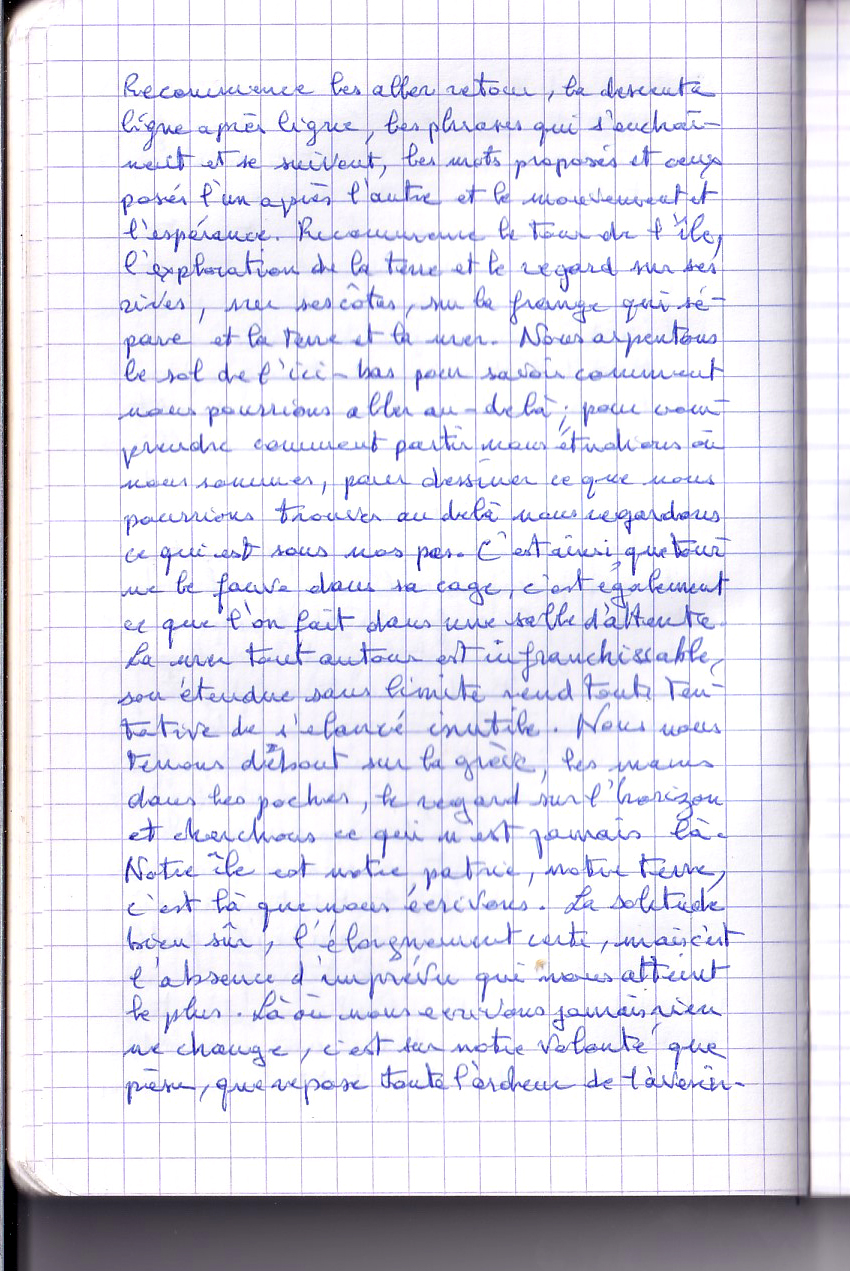 Recommence les aller retour, la descente
ligne après ligne, les phrases qui s'enchaî-
nent et se suivent, les mots proposés et ceux
posés l'un après l'autre et le mouvement et
l'espérance. Recommence le tour de l'île,
l'exploration de la terre et le regard sur ses
rives, sur ses côtes, sur la frange qui sé-
pare et la terre et la mer. Nous arpentons
le sol de l'ici-bas pour savoir comment
nous pourrions aller au-delà ; pour com-
prendre comment partir nous étudions où
nous sommes, pour dessiner ce que nous
pourrions trouver au delà nous regardons
ce qui est sous nos pas. C'est ainsi que tour-
ne le fauve dans sa cage, c'est également
ce que l'on fait dans une salle d'attente.
La mer tout autour est infranchissable,
son étendue sans limite rend toute ten-
tative de s'élancé inutile. Nous nous
tenons debout sur la grève, les mains
dans les poches, le regard sur l'horizon
et cherchons ce qui n'est jamais là.
Notre île est notre patrie, notre terre,
c'est là que nous écrivons. La solitude
bien sûr, l'éloignement certe, mais c'est
l'absence d'imprévu qui nous atteint
le plus. Là où nous ecrivons jamais rien
ne change, c'est sur notre volonté que
pèse, que repose toute l'ardeur de l'avenir.